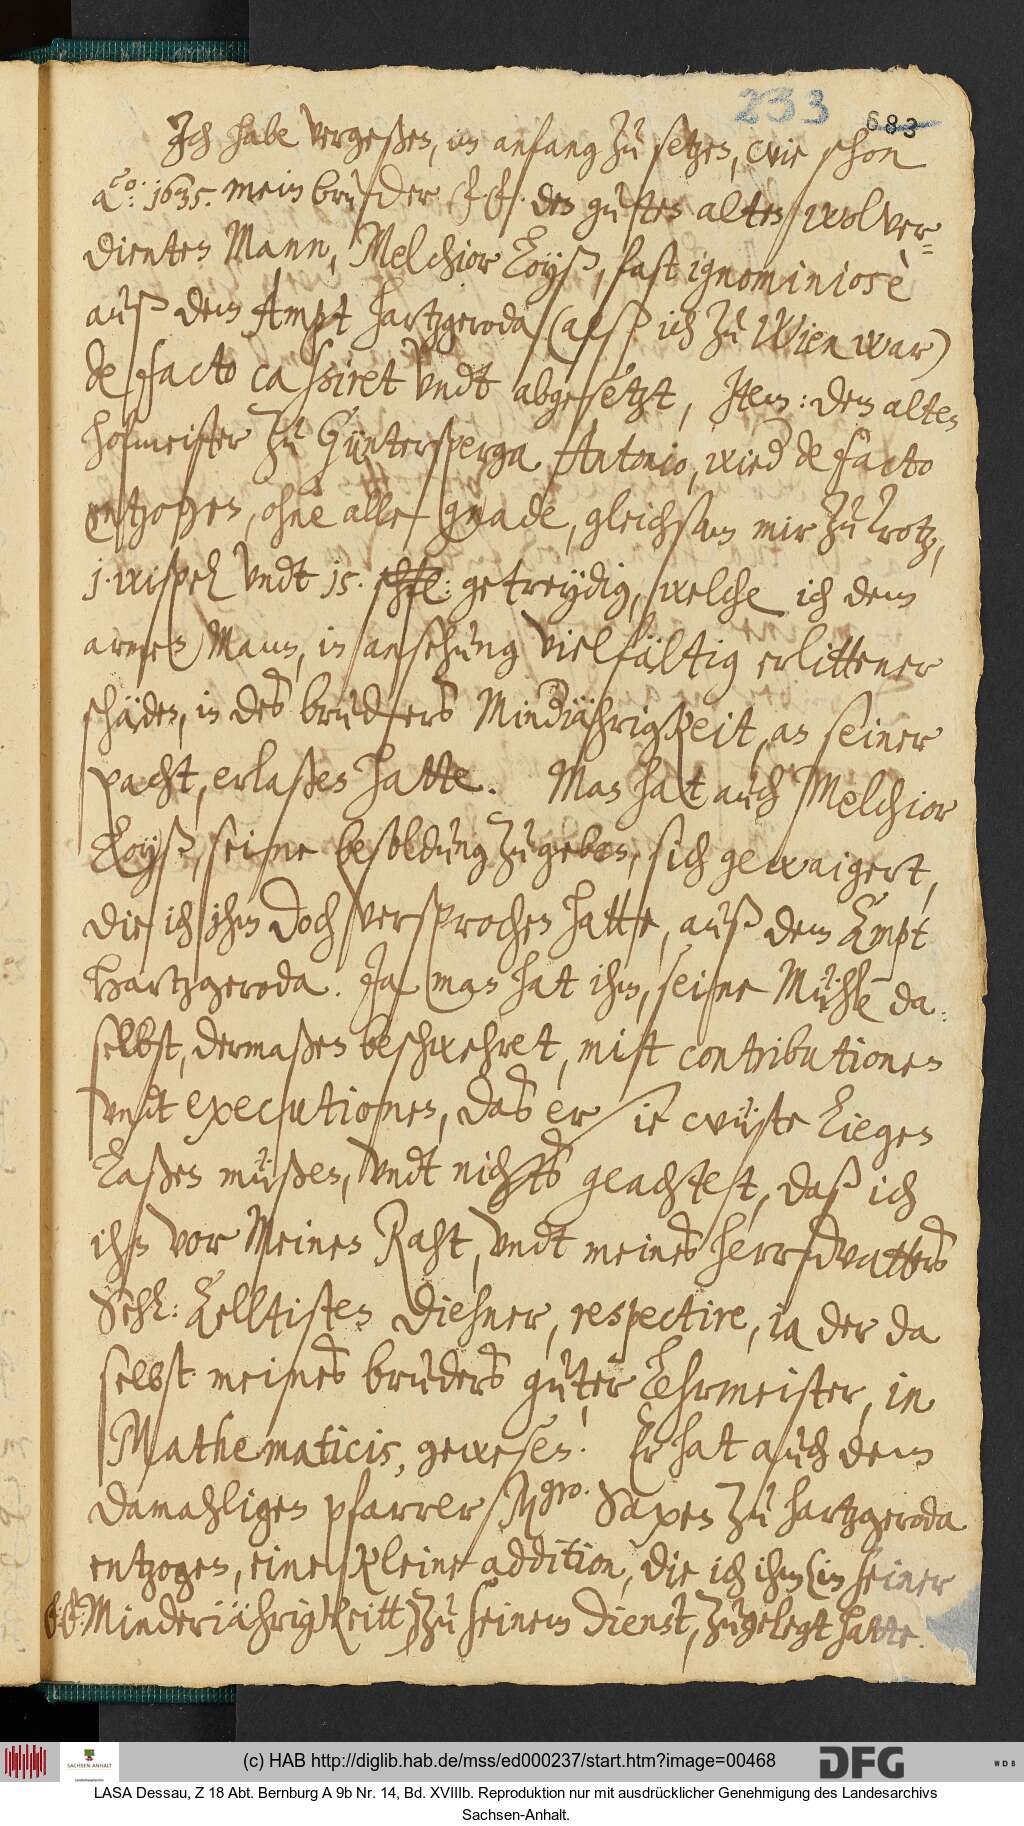 233
683
Ich habe vergeßen, im anfang zu setzen, wie schon
Ao: 1635. mein bruder F. F. den guten alten wolver=
dienten Mann, Melchior Loyß, fast ignominiosè
auß dem Ampt Hartzgeroda (alß ich zu Wien war)
de facto cassiret undt abgesetzt, Item: dem alten
hofmeister zu Güntersperga Antonio, wird de facto
entzogen, ohne alle gnade, gleichsam mir zu trotz,
1. wispel undt 15. getreydig, welche ich dem
armen Mann, in ansehung vielfältig erlittener
schäden, in des bruders Mindiährigkeit, an seiner
pacht, erlaßen hatte. Man hat auch Melchior
Loyß, seine besoldung zu geben, sich gewaigert,
die ich ihm doch versprochen hatte, auß dem Ampt
Hartzgeroda. Ja man hat ihm, seine Mühle da:
selbst, dermaßen beschwehret, mitt contributionen
undt executionen, das er sie wüste liegen
laßen müßen, undt nichts geachtett, daß ich
ihn vor Meinen Raht, undt meines herrnvatters
Sehl: Elltisten diehner, respectire, ia der da
selbst meines bruders guter Lehrmeister, in
Mathematicis, gewesen. Er hat auch dem
damahligen pfarrer Mgro. Saxen zu Hartzgeroda
entzogen, eine kleine addition, die ich ihm (in seiner
Minderiährigkeitt) zu seinem dienst, zugelegt hatte.
(c) HAB http://diglib.hab.de/mss/ed000237/start.htm?image=00468
SACHSEN-ANHALT
DFG
WDB
LASA Dessau, Z 18 Abt. Bernburg A 9b Nr. 14, Bd. XVIIIb. Reproduktion nur mit ausdrücklicher Genehmigung des Landesarchivs
Sachsen-Anhalt.